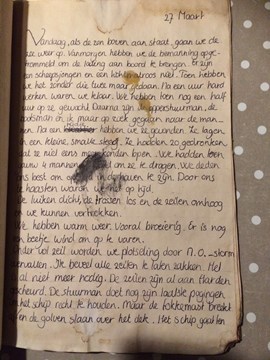 27 Maart
Vandaag, als de zon boven aan staat, gaan we de
zee weer op. Vanmorgen hebben we de bemanning opge-
trommeld om de lading aan boord te brengen. Er zijn
een scheepsjongen en een matroos niet. Toen hebben
we het zonder die twee maar gedaan. Na een uur hard
werken waren we klaar. We hebben toen nog een half
uur op ze gewacht. Daarna zijn de opperstuurman, de
bootsman en ik maar op zoek gegaan naar de man-
nen. Na een hebben we ze gevonden. Ze lagen
in een kleine, smalle steeg. Ze hadden zo gedronken
dat ze niet eens meer konden lopen. We hadden toen
nieuwe mannen om ze te dragen. We deden
ons best om op tijd in de haven te zijn. Door ons
te haasten waren we net op tijd.
De luiken dicht, de trossen los en de zeilen omhoog
en we kunnen vertrekken.
We hebben warm weer. Vooral broeierig. Er is nog
een beetje wind om op te varen.
Onder vol zeil worden we plotseling door N.O.-storm
overvallen. Ik beveel alle zeilen te laten zakken. Het
al niet meer nodig. De zeilen zijn al aan flarden
gescheurd. De stuurman doet nog zijn laatste pogingen
het schip recht te houden. Maar de fokkemast breekt
en de golven slaan over het dek. Het schip